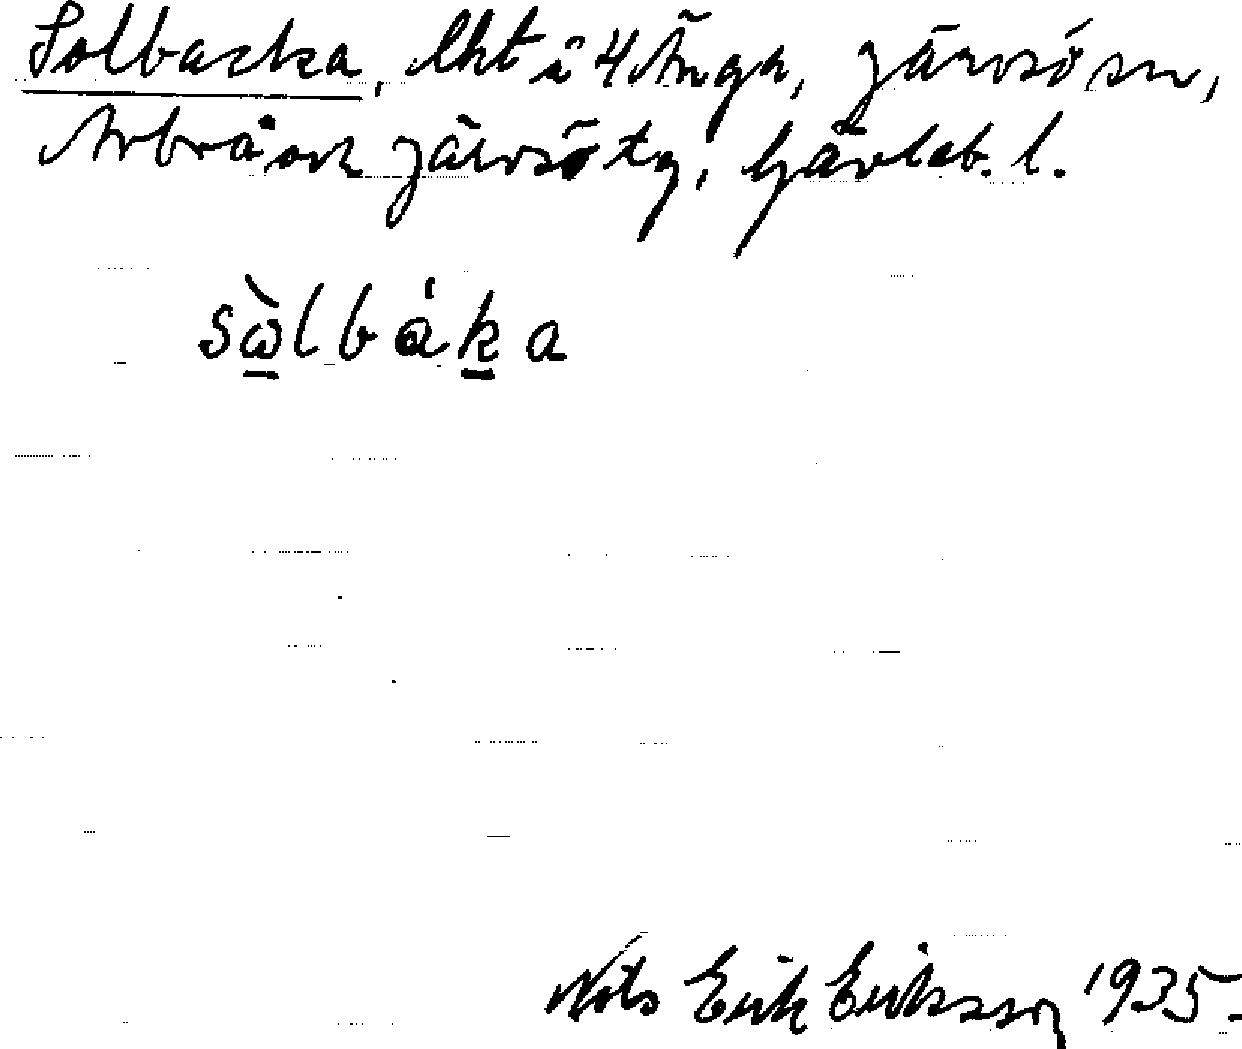 Solbacka, lht i 4 Änga, Järvsö sn,
Arbrå och Järvsö tg, Gävleb. l.
sὼlbákа
Nils Erik Eriksson 1935.